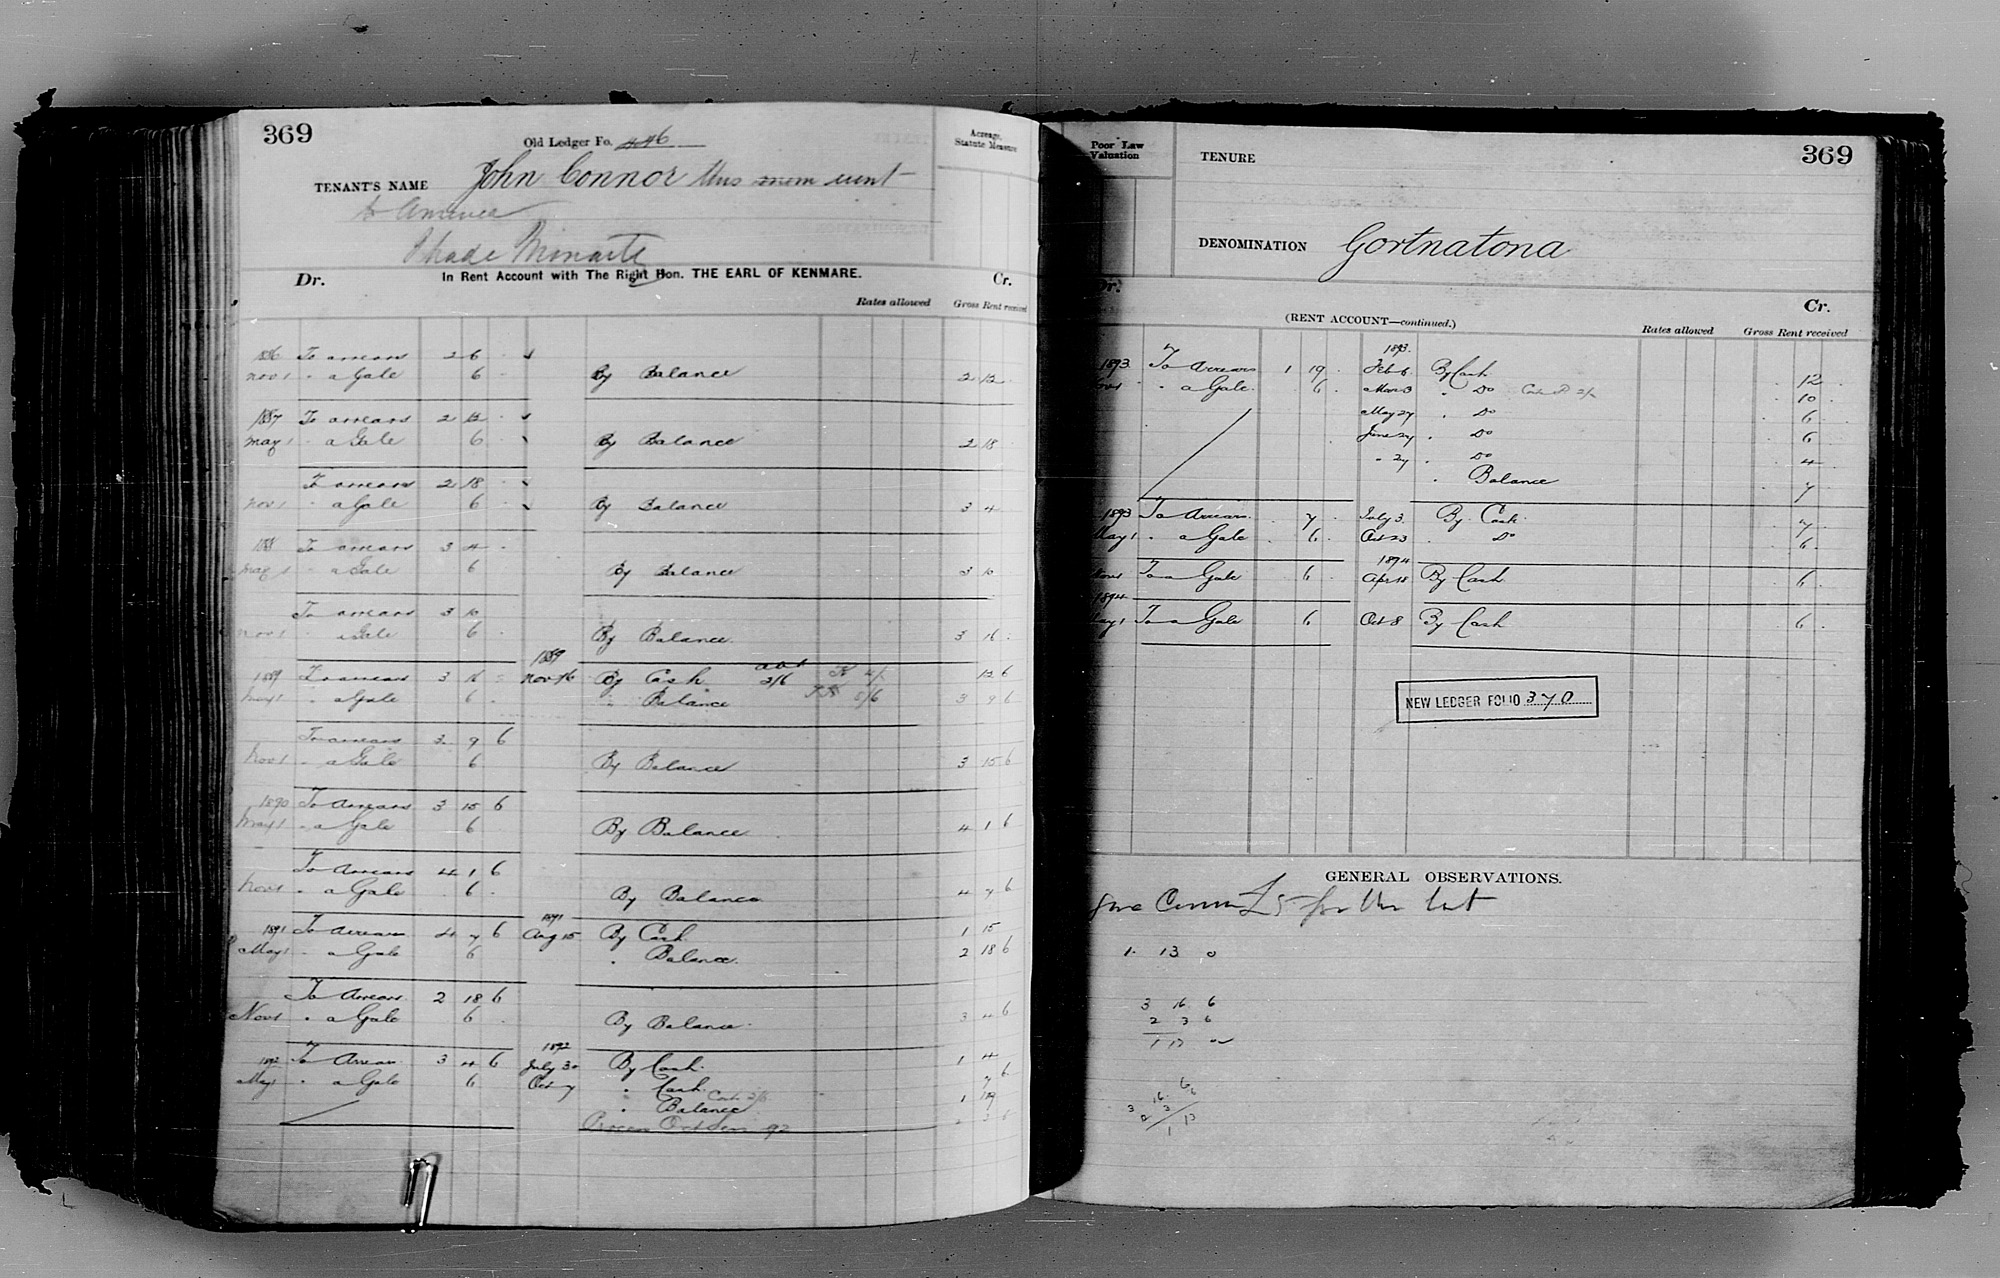 369
Old Ledger Fo. 446
Acreage, Statute Measure
TENANT'S NAME John Connor this went
to America
Dr. In Rent Account with The Right Hon. THE EARL OF KENMARE. Cr.
Rates allowed Gross Rent received
1886 To arrears 2 6 -
Nov 1 " a Gale 6 - By Balance 2 12 -
1887 To arrears 2 12 -
May 1 " a Gale 6 - By Balance 2 18
To arrears 2 18 -
Nov 1 " a Gale 6 By Balance 3 4
188 To arrears 3 4 -
May 1 " a Gale 6 By Balance 3 10
To arrears 3 10
Nov 1 " a Gale 6 By Balance 3 16 -
1889
1889 To arrears 3 16 - Nov 16 By Cash 12 6
May 1 " a Gale 6 - " Balance 3 9 6
To arrears 3 9 6
Nov 1 " a Gale 6 By Balance 3 15 6
1890 To Arrears 3 15 6
May 1 " a Gale 6 By Balance 4 1 6
To Arrears 4 1 6
Nov 1 " a Gale 6 - By Balance 4 7 6
1891
1891 To Arrears 4 7 6 Aug 15 By Cash 1 15
May 1 " a Gale 6 " Balance 2 18 6
To Arrears 2 18 6
Nov 1 " a Gale 6 - By Balance 3 4 6
1892
1892 To Arrears 3 4 6 July 30 By Cash 1 4
May 1 " a Gale 6 Oct 7 " Cash 7 6
" Balance 1 19
Poor Law Valuation
TENURE
369
DENOMINATION Gortnatona
Dr. Cr.
(RENT ACCOUNT—continued.)
Rates allowed Gross Rent received
1893.
1893 To Arrears 1 19 - Feb 6 By Cash 12 -
Nov 1 " a Gale 6 - Mar 3 " Do 10 -
May 27 " Do 6 -
June 27 " Do 6
" 27 " Do 4
" Balance 7
1893 To Arrears 7 - July 3 By Cash 7 -
May 1 " a Gale 6 - Oct 23 " Do 6 -
1894
Nov 1 To a Gale 6 - Apr 18 By Cash 6 -
1894
May 1 To a Gale 6 Oct 8 By Cash 6 -
NEW LEDGER FOLIO 370
GENERAL OBSERVATIONS.
1 13 0
3 16 6
2 3 6
1 13 0